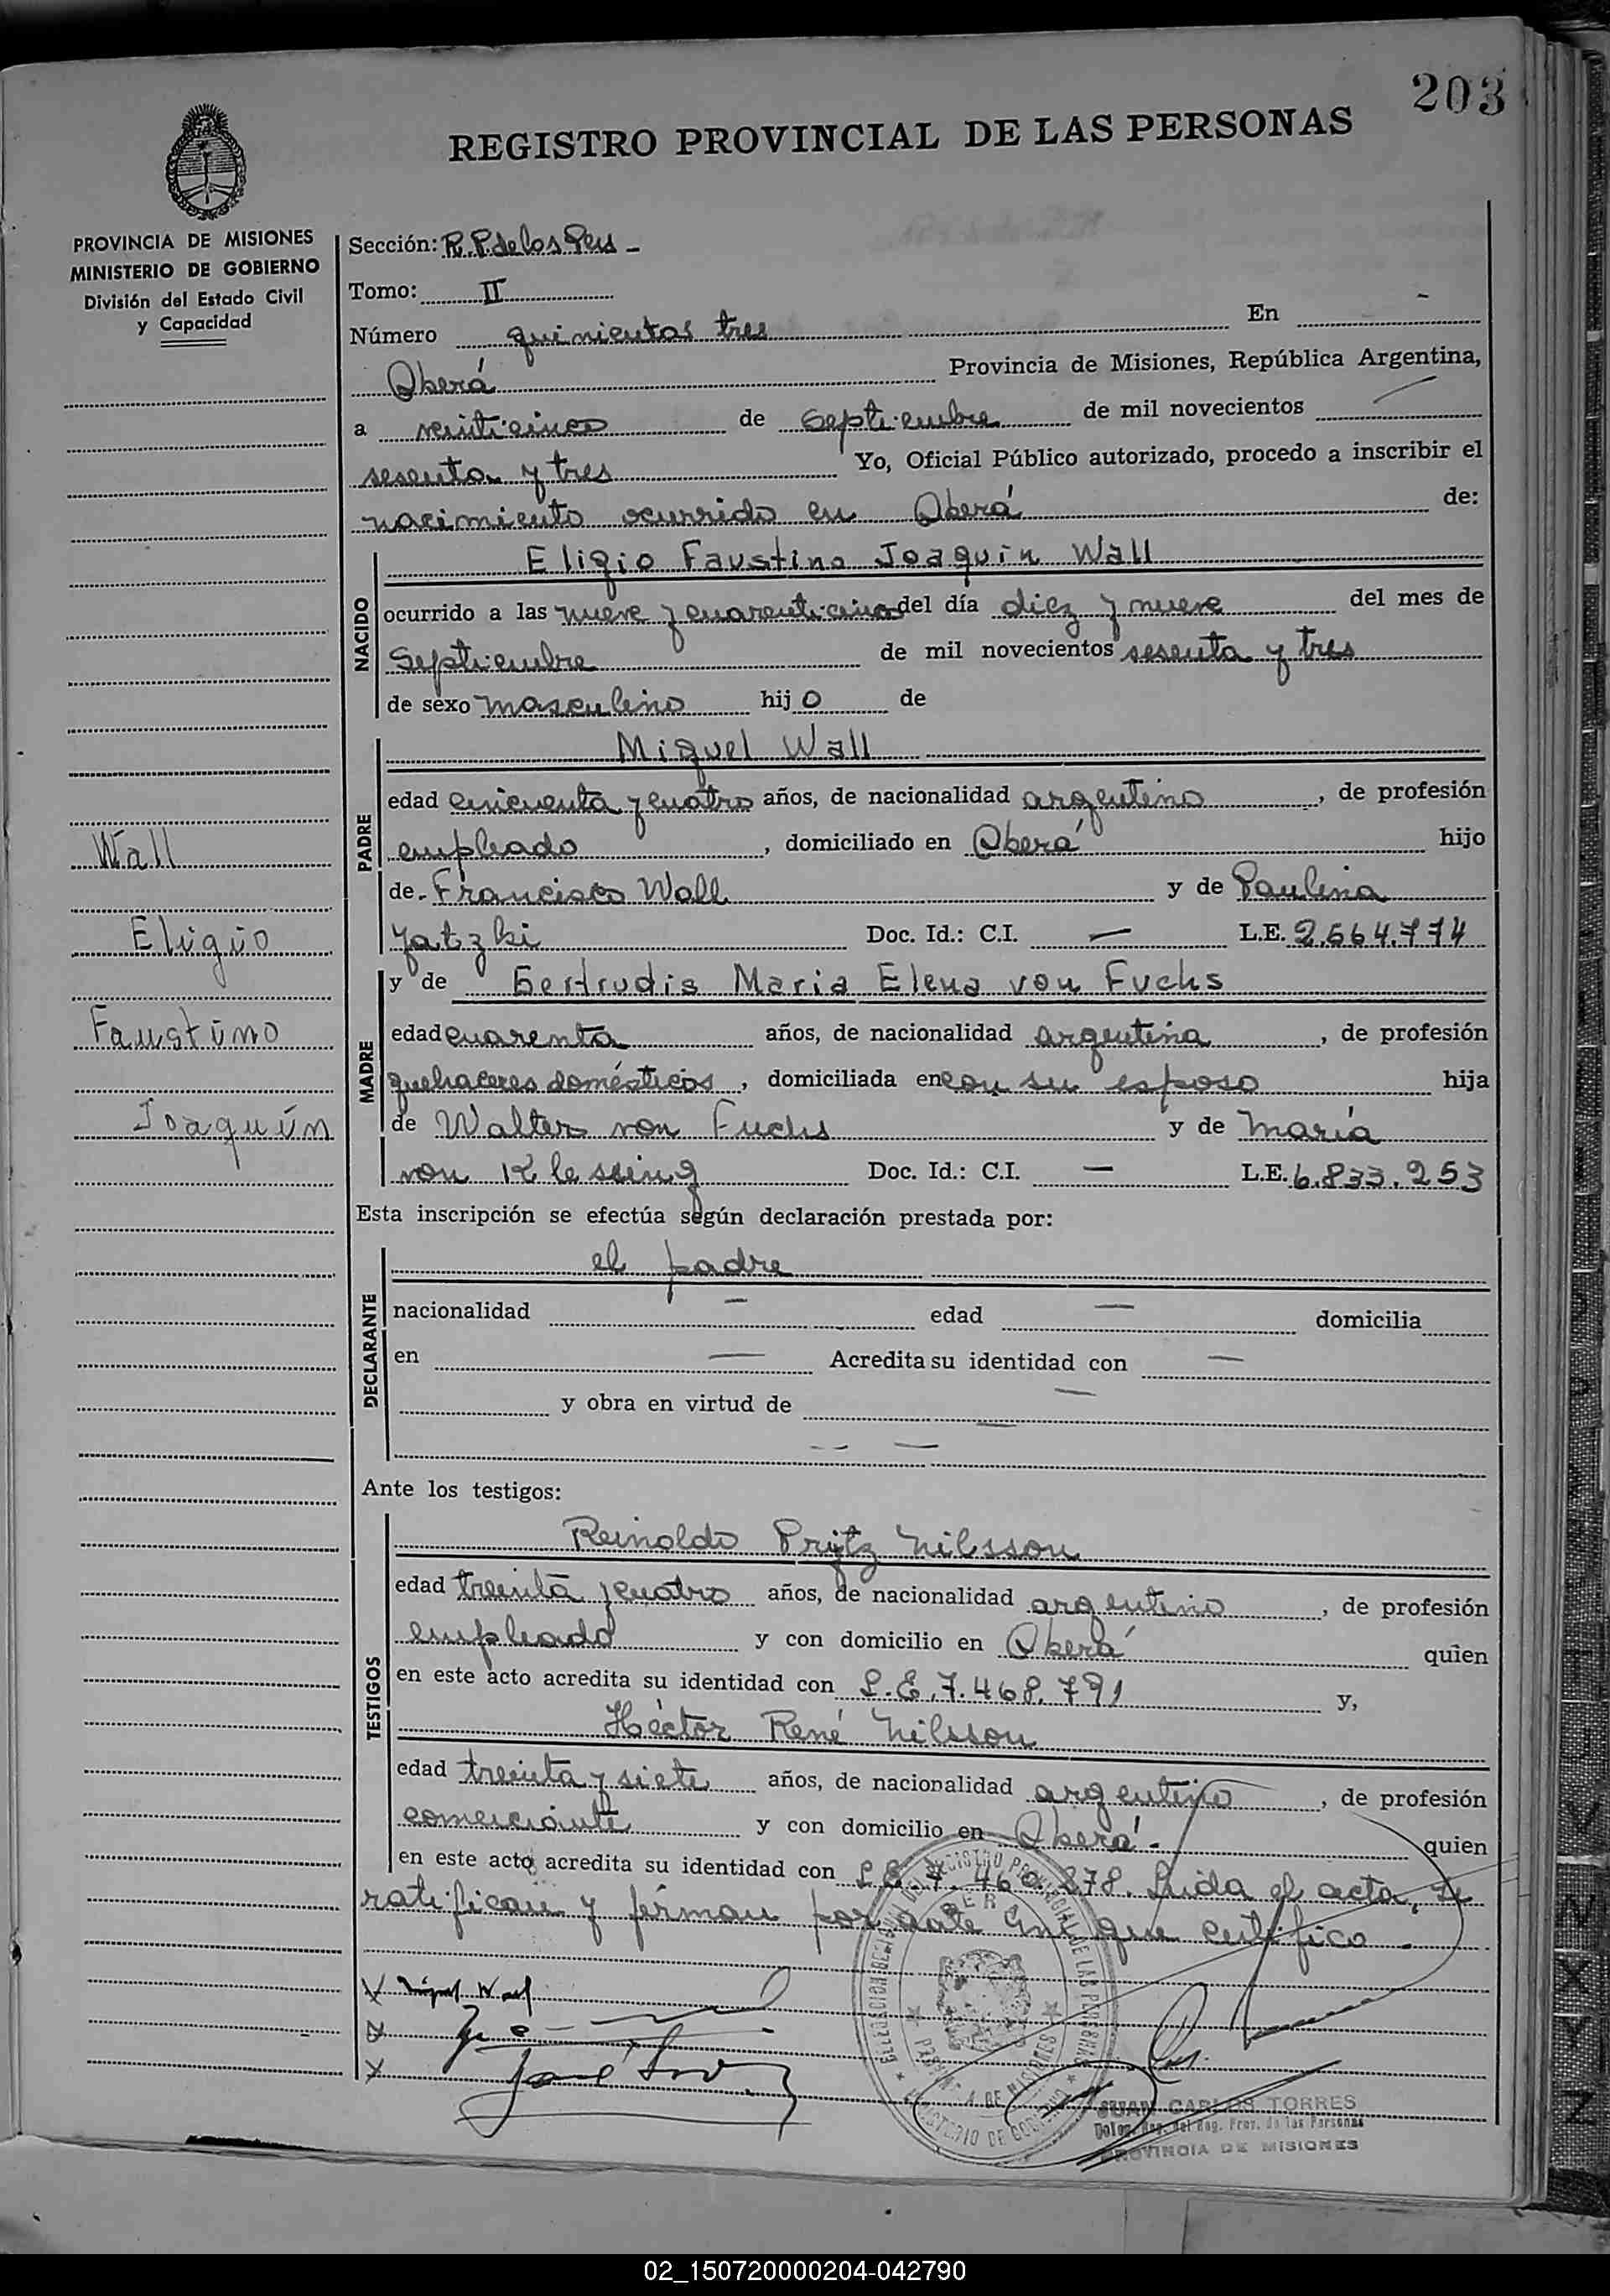 203
REGISTRO PROVINCIAL DE LAS PERSONAS
PROVINCIA DE MISIONES
MINISTERIO DE GOBIERNO
División del Estado Civil
y Capacidad
Sección: R.P. de las Pers -
Tomo: II
Número quinientos tres En -
Oberá Provincia de Misiones, República Argentina,
a veinticinco de Septiembre de mil novecientos
sesenta y tres Yo, Oficial Público autorizado, procedo a inscribir el
nacimiento ocurrido en Oberá de:
NACIDO
Eligio Faustino Joaquín Wall
ocurrido a las nueve y cuarenticinco del día diez y nueve del mes de
Septiembre de mil novecientos sesenta y tres
de sexo masculino hijo de
PADRE
Miguel Wall
edad cincuenta y cuatro años, de nacionalidad argentino, de profesión
empleado, domiciliado en Oberá hijo
de - Francisco Wall y de Paulina
Yatzki Doc. Id.: C.I. — L.E. 2.664.774
MADRE
y de Gertrudis Maria Elena von Fuchs
edad cuarenta años, de nacionalidad argentina, de profesión
quehaceres domésticos, domiciliada en con su esposo hija
de Walter von Fuchs y de María
von Klessing Doc. Id.: C.I. — L.E. 6.833.253
Wall
Eligio
Faustino
Joaquín
Esta inscripción se efectúa según declaración prestada por:
DECLARANTE
el padre
nacionalidad — edad — domicilia
en — Acredita su identidad con —
y obra en virtud de —
Ante los testigos:
TESTIGOS
Reinoldo Prytz Nilsson
edad treinta y cuatro años, de nacionalidad argentino, de profesión
empleado y con domicilio en Oberá quien
en este acto acredita su identidad con L.E. 7.468.791 y,
Héctor René Nilsson
edad treinta y siete años, de nacionalidad argentino, de profesión
comerciante y con domicilio en Oberá - quien
en este acto acredita su identidad con L.E. 7.460.878. Leída el acta, se
ratifican y firman por ante mí que certifico -
Miguel Wall
JUAN CARLOS TORRES
Reg. del Reg. Prov. de las Personas
PROVINCIA DE MISIONES
02_150720000204-042790